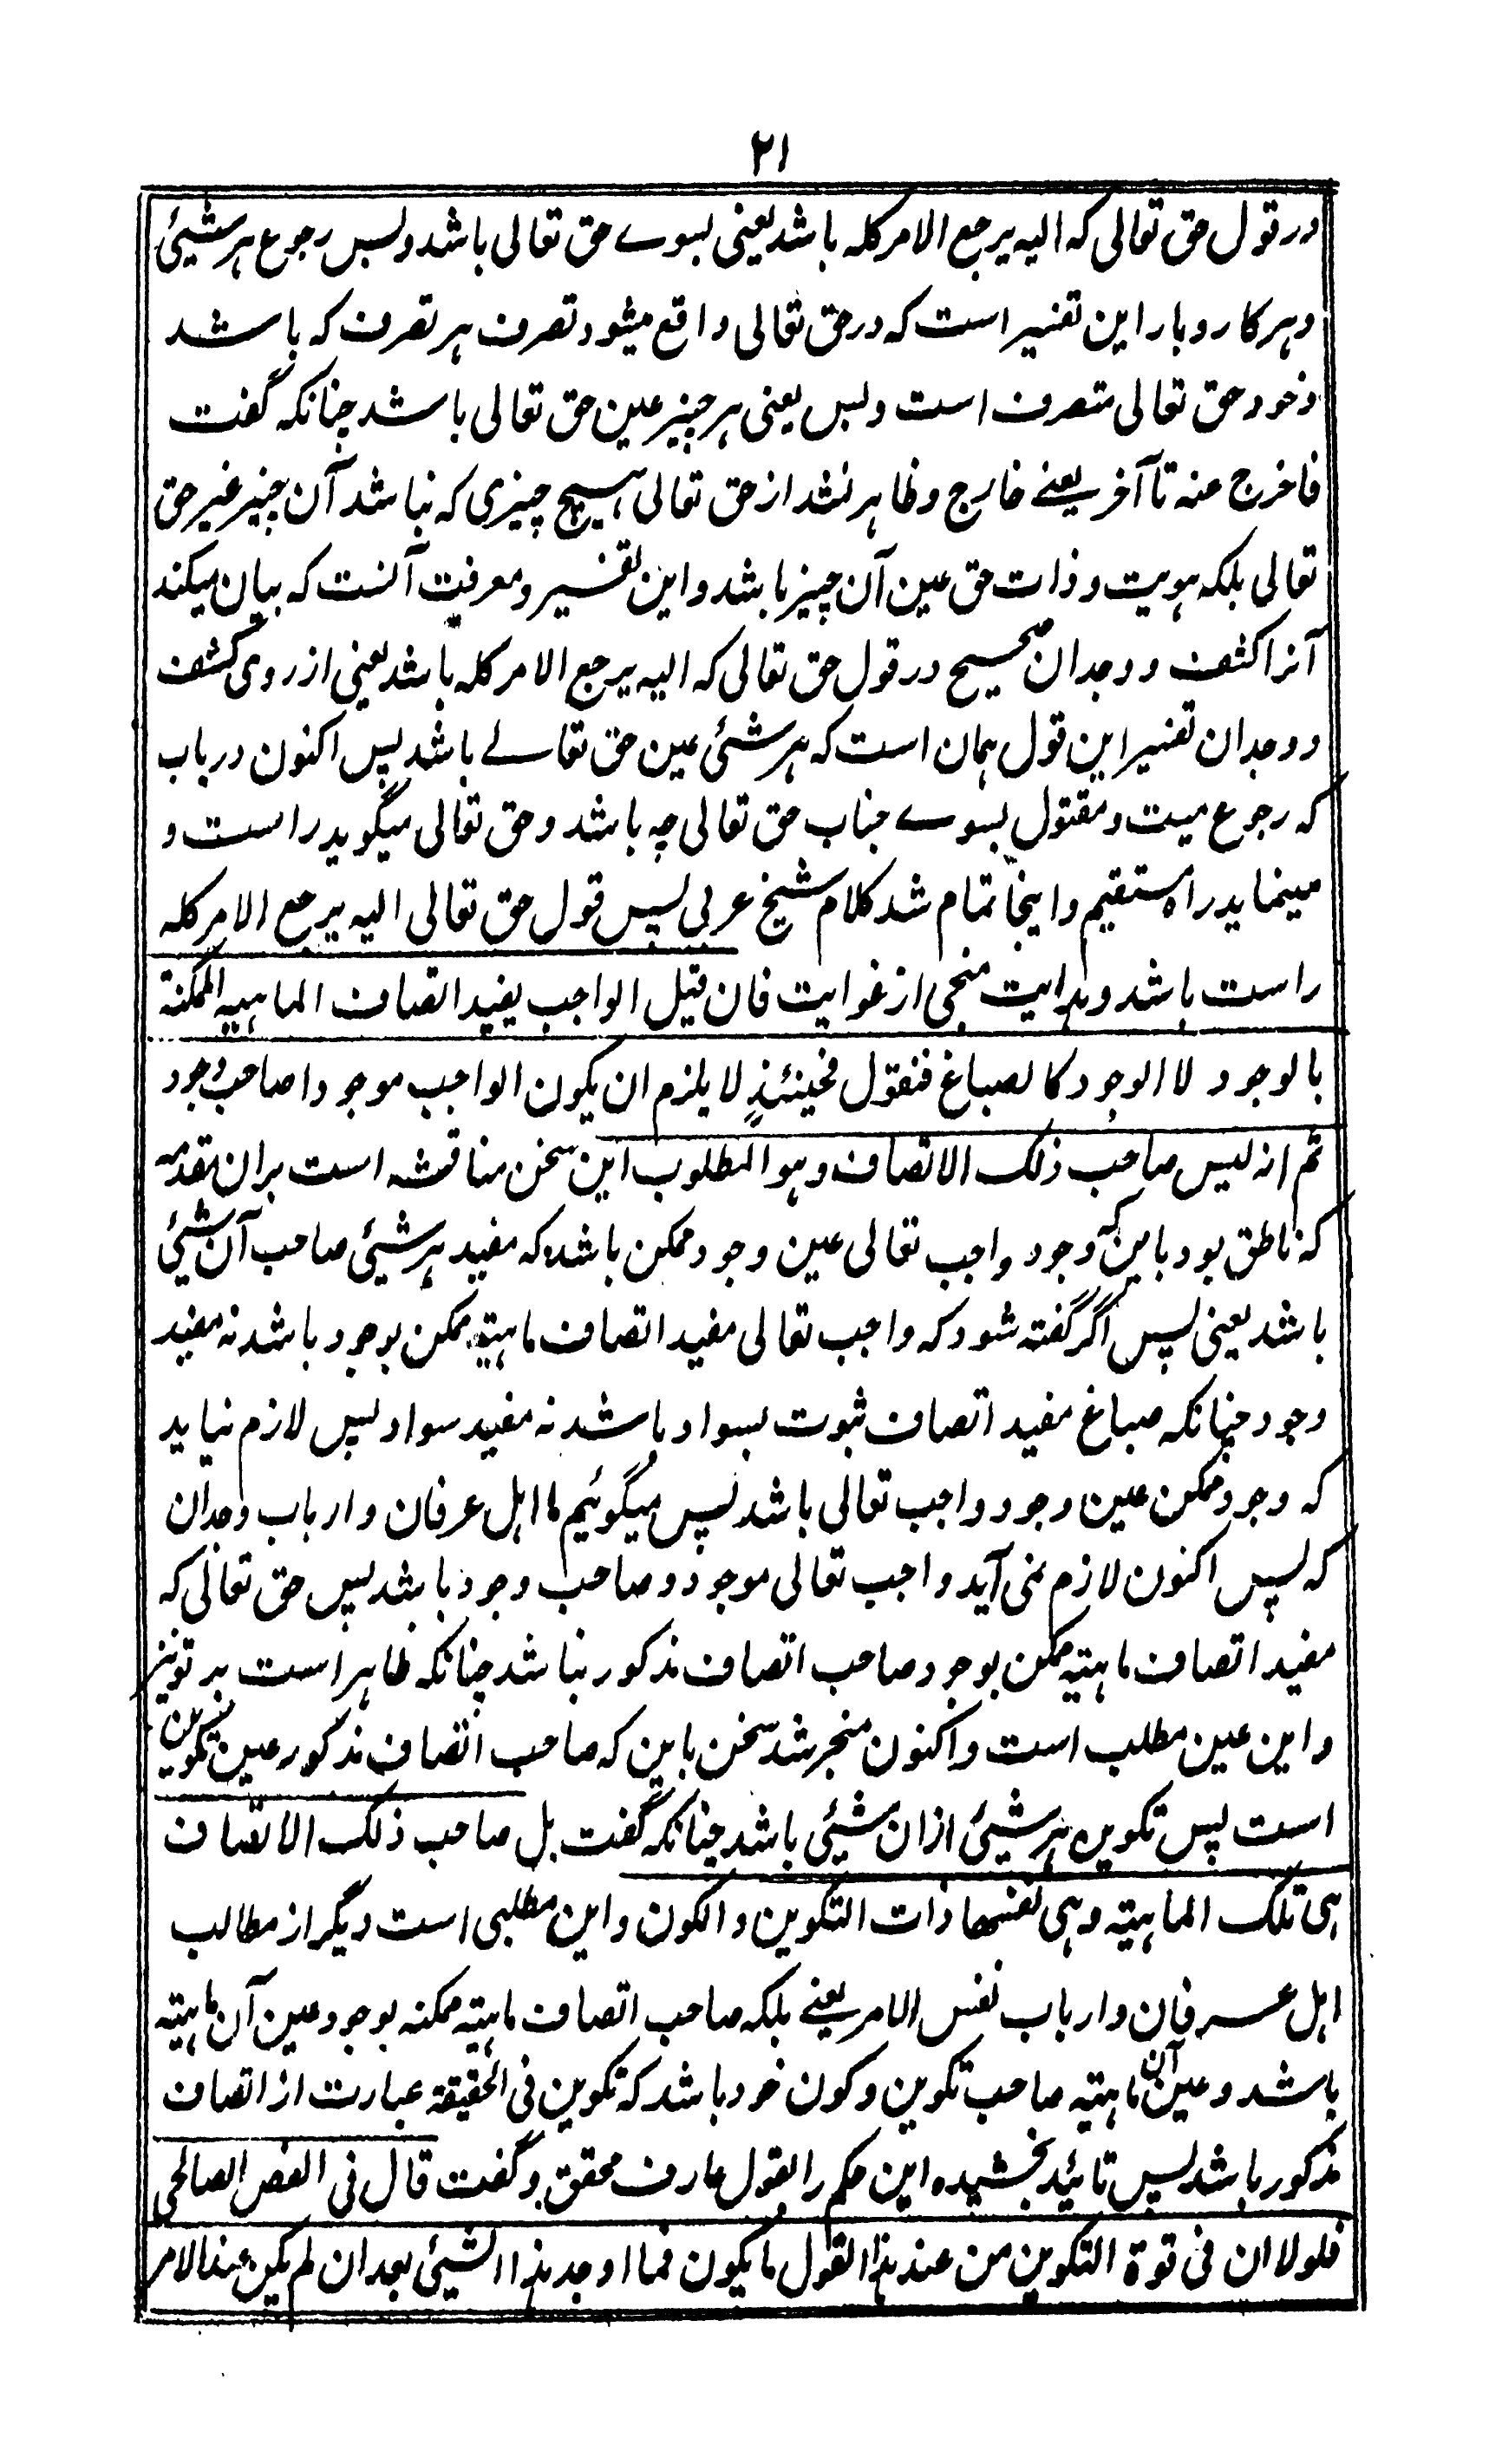 ۲۱
در قول حق تعالی که الیه یرجع الامر کله باشد یعنی بسوے حق تعالی باشد و بس رجوع هر شیئی
و هر کاروبار این تفسیر است که در حق تعالی واقع میشود تصرف هر تصرف که باشد
و خود حق تعالی متصرف است و بس یعنی هر چیز عین حق تعالی باشد چنانکه گفت
فاخرج عنه تا آخر یعنے خارج و ظاهر نشد از حق تعالی هیچ چیزی که نباشد آن چیز غیر حق
تعالی بلکه هویت و ذات حق عین آن چیز باشد و این تفسیر و معرفت آنست که بیان میکند
آنرا کشف و وجدان صحیح در قول حق تعالی که الیه یرجع الامر کله باشد یعنی از روی کشف
و وجدان تفسیر این قول همان است که هر شئی عین حق تعالے باشد پس اکنون دریاب
که رجوع میت و مقتول بسوے جناب حق تعالی چه باشد و حق تعالی میگوید راست و
مینماید راه مستقیم و اینجا تمام شد کلام شیخ عربی پس قول حق تعالی الیه یرجع الامر کله
راست باشد و هدایت منجی از غوایت فان قیل الواجب یفید اتصاف الماهیه الممکنة
بالوجود لا الوجود کالصباغ فنقول فحینئذٍ لا یلزم ان یکون الواجب موجودا صاحب وجود
ثم انه لیس صاحب ذلک الاتصاف و هو المطلوب این سخن مناقشه است بران مقدمه
که ناطق بود باین که وجود واجب تعالی عین وجود ممکن باشد که مفید هر شیئی صاحب آن شیئی
باشد یعنی پس اگر گفته شود که واجب تعالی مفید اتصاف ماهیته ممکن بوجود باشد نه مفید
وجود چنانکه صباغ مفید اتصاف ثبوت بسواد باشد نه مفید سواد پس لازم نیاید
که وجود ممکن عین وجود واجب تعالی باشد پس میگوئیم ما اهل عرفان و ارباب وجدان
که پس اکنون لازم نمی آید واجب تعالی موجود و صاحب وجود باشد پس حق تعالی که
مفید اتصاف ماهیته ممکن بوجود صاحب اتصاف مذکور نباشد چنانکه ظاهر است بر تو نیز
و این عین مطلب است و اکنون منجر شد سخن باین که صاحب اتصاف مذکور عین تکوین
است پس تکوین هر شیئی ازان شیئی باشد چنانکه گفت بل صاحب ذلک الاتصاف
هی تلک الماهیته و هی نفسها ذات التکوین و الکون و این مطلبی است دیگر از مطالب
اهل عرفان و ارباب نفس الامر یعنے بلکه صاحب اتصاف ماهیته ممکنه بوجود عین آن ماهیته
باشد و عین آن ماهیته صاحب تکوین و کون خود باشد که تکوین فی الحقیقة عبارت از اتصاف
مذکور باشد پس تائید بخشیده این حکم را بقول عارف محقق و گفت قال فی الفص الصالحی
فلولا ان فی قوة التکوین من عند هذا القول ما یکون فما اوجد هذا الشیئی بعد ان لم یکن عند الامر